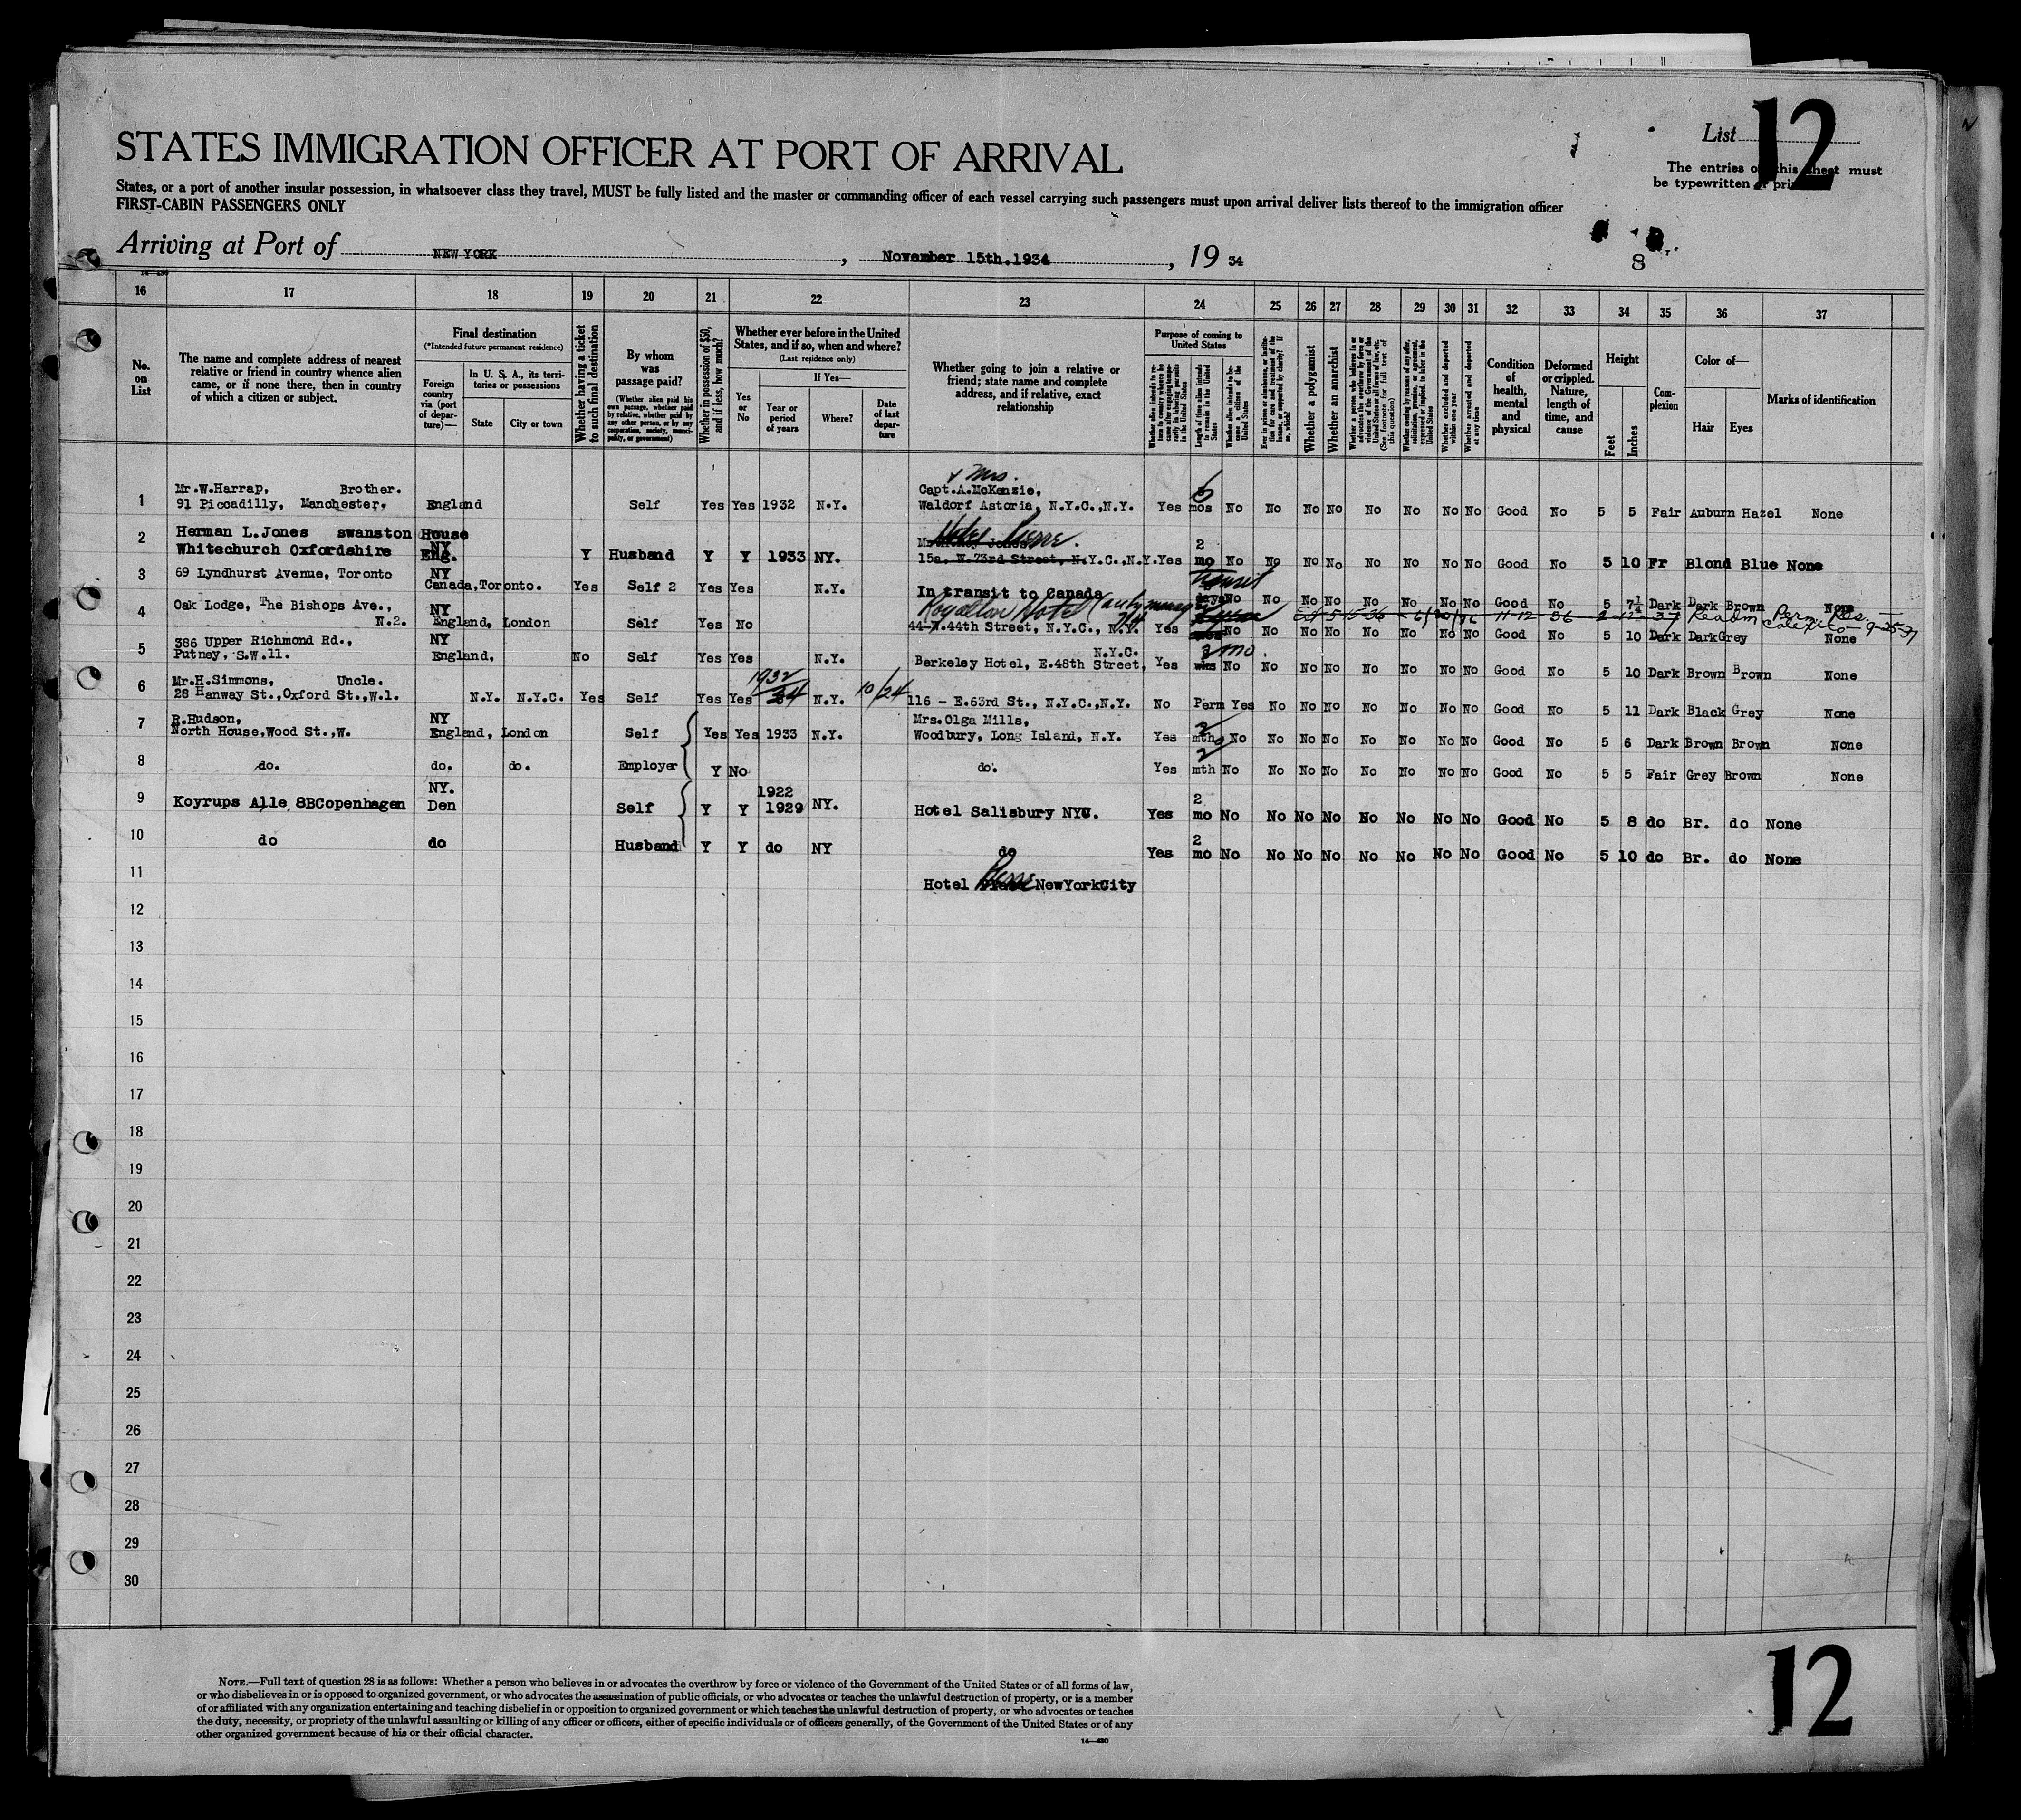 List 12
STATES IMMIGRATION OFFICER AT PORT OF ARRIVAL
The entries on this sheet must
be typewritten or printed
States, or a port of another insular possession, in whatsoever class they travel, MUST be fully listed and the master or commanding officer of each vessel carrying such passengers must upon arrival deliver lists thereof to the immigration officer
FIRST-CABIN PASSENGERS ONLY
Arriving at Port of NEW YORK , November 15th.1934 , 19 34
8
14—430
16 17 18 19 20 21 22 23 24 25 26 27 28 29 30 31 32 33 34 35 36 37
No. on List
The name and complete address of nearest relative or friend in country whence alien came, or if none there, then in country of which a citizen or subject.
Final destination
(*Intended future permanent residence)
Foreign country via (port of departure)—
In U. S. A., its territories or possessions
State
City or town
Whether having a ticket to such final destination
By whom was passage paid?
(Whether alien paid his own passage, whether paid by relative, whether paid by any other person, or by any corporation, society, municipality, or government)
Whether in possession of $50, and if less, how much?
Whether ever before in the United States, and if so, when and where?
(Last residence only)
Yes or No
If Yes—
Year or period of years
Where?
Date of last departure
Whether going to join a relative or friend; state name and complete address, and if relative, exact relationship
Purpose of coming to United States
Length of time alien intends to remain in the United States
Whether a polygamist
Whether an anarchist
Whether excluded and deported within one year
Whether arrested and deported at any time
Condition of health, mental and physical
Deformed or crippled. Nature, length of time, and cause
Height
Feet
Inches
Complexion
Color of—
Hair
Eyes
Marks of identification
& Mrs.
1 Mr.W.Harrap, Brother. 91 Piccadilly, Manchester. England Self Yes Yes 1932 N.Y. Capt.A.McKenzie, Waldorf Astoria, N.Y.C.,N.Y. Yes 6 mos No No No No No No No No Good No 5 5 Fair Auburn Hazel None
2 Herman L.Jones swanston House Whitechurch Oxfordshire NY Eng. Y Husband Y Y 1933 NY. Hotel Pierre. 15a. W.73rd Street, N.Y.C.,N.Y. Yes 2 mo No No No No No No No No Good No 5 10 Fr Blond Blue None
3 69 Lyndhurst Avenue, Toronto NY Canada,Toronto. Yes Self 2 Yes Yes N.Y. In transit to Canada Transit days No No No No No No No No Good No 5 7½ Dark Dark Brown None
4 Oak Lodge, The Bishops Ave., N.2. NY England, London Self Yes No Royalton Hotel 44-W.44th Street, N.Y.C., N.Y. Yes No No No No No No No No Good No 5 10 Dark DarkGrey None
5 386 Upper Richmond Rd., Putney, S.W.11. NY England, No Self Yes Yes N.Y. N.Y.C. Berkeley Hotel, E.48th Street, Yes 2 mo. No No No No No No No No Good No 5 10 Dark Brown Brown None
6 Mr.H.Simmons, Uncle. 28 Hanway St.,Oxford St.,W.1. N.Y. N.Y.C. Yes Self Yes Yes 1932 34 N.Y. 10/24 116 - E.63rd St., N.Y.C.,N.Y. No Perm Yes No No No No No No No Good No 5 11 Dark Black Grey None
7 R.Hudson, North House,Wood St.,W. NY England, London Self Yes Yes 1933 N.Y. Mrs.Olga Mills, Woodbury, Long Island, N.Y. Yes 2 mths No No No No No No No No Good No 5 6 Dark Brown Brown None
8 do. do. do. Employer Y No do. Yes 2 mth No No No No No No No No Good No 5 5 Fair Grey Brown None
9 Koyrups Alle 8BCopenhagen NY. Den Self Y Y 1922 1929 NY. Hotel Salisbury NYC. Yes 2 mo No No No No No No No No Good No 5 8 do Br. do None
10 do do Husband Y Y do NY do Yes 2 mo No No No No No No No No Good No 5 10 do Br. do None
11 Hotel Pierre NewYorkCity
12
13
14
15
16
17
18
19
20
21
22
23
24
25
26
27
28
29
30
NOTE.—Full text of question 28 is as follows: Whether a person who believes in or advocates the overthrow by force or violence of the Government of the United States or of all forms of law,
or who disbelieves in or is opposed to organized government, or who advocates the assassination of public officials, or who advocates or teaches the unlawful destruction of property, or is a member
of or affiliated with any organization entertaining and teaching disbelief in or opposition to organized government or which teaches the unlawful destruction of property, or who advocates or teaches
the duty, necessity, or propriety of the unlawful assaulting or killing of any officer or officers, either of specific individuals or of officers generally, of the Government of the United States or of any
other organized government because of his or their official character.
14—430
12